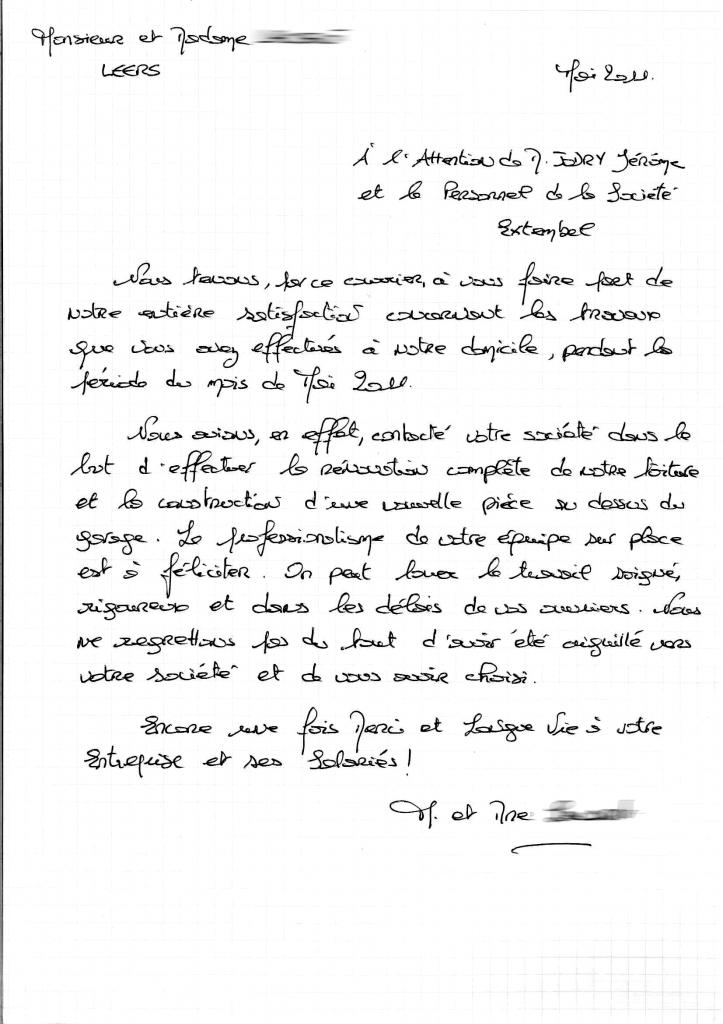 Monsieur et Madame
LEERS
Mai 2011.
À l'Attention de M. JOURY Jérôme
et le Personnel de la Société
Extembel
Nous tenons, par ce courrier, à vous faire part de
notre entière satisfaction concernant les travaux
que vous avez effectués à notre domicile, pendant la
période du mois de Mai 2011.
Nous avions, en effet, contacté votre société dans le
but d'effectuer la rénovation complète de notre toiture
et la construction d'une nouvelle pièce au dessus du
garage. Le professionalisme de votre équipe sur place
est à féliciter. On peut louer le travail soigné,
rigoureux et dans les délais de vos ouvriers. Nous
ne regrettons pas du tout d'avoir été aiguillé vers
votre société et de vous avoir choisi.
Encore une fois Merci et Longue Vie à votre
Entreprise et ses Salariés!
M. et Mme